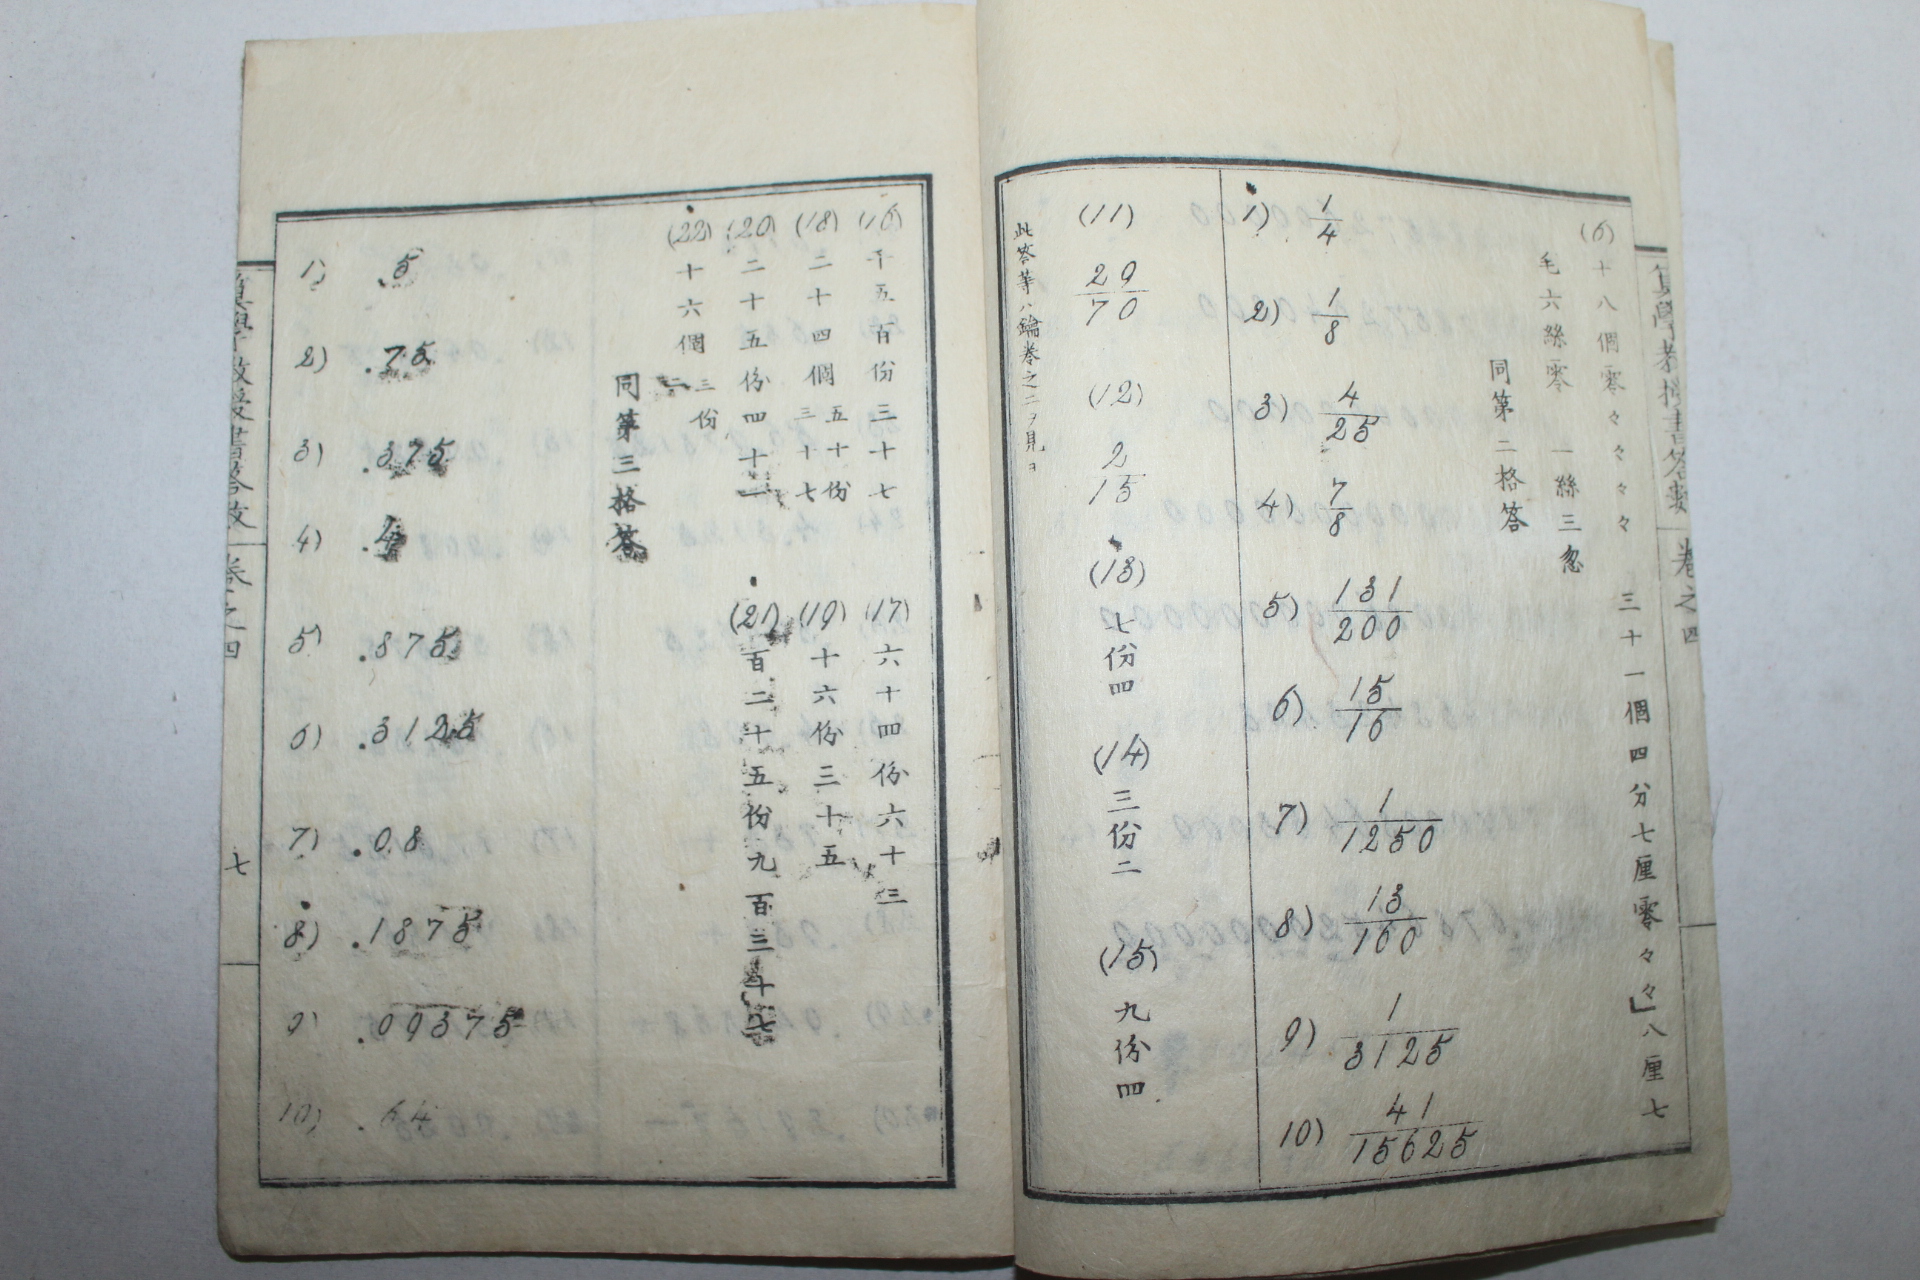 算學教授書答數 卷之四
(6) 十八個零々々々々 三十一個四分七厘零々々」八厘七
毛六絲零 一絲三忽
同第二格答
1) 1/4
2) 1/8
3) 4/25
4) 7/8
5) 131/200
6) 15/16
7) 1/1250
8) 13/100
9) 1/3125
10) 41/15625
(11) 29/70
(12) 2/15
(13) 七份四
(14) 三份二
(15) 九份四
此答等ハ鑰卷之二ヲ見ヨ
(16) 千五百份三十七
(17) 六十四份六十三
(18) 二十四個 五十份三十七
(19) 十六份三十五
(20) 二十五份四十一
(21) 百二十五份九百三十七
(22) 十六個 三份二
同第三格答
1) .5
2) .75
3) .375
4) .4
5) .875
6) .3125
7) .08
8) .1875
9) .09375
10) .64
算學教授書答數 卷之四
七